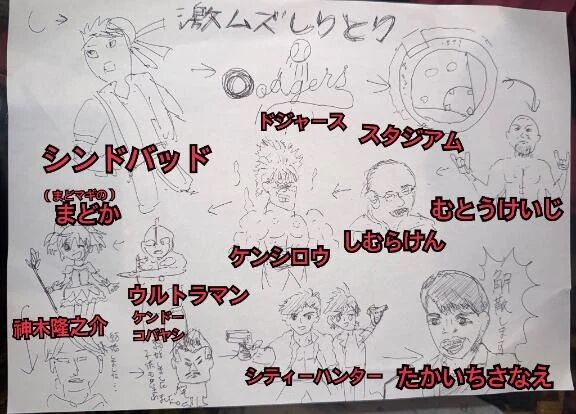 激ムズしりとり
し→
Dodgers
ドジャース
スタジアム
シンドバッド
むとうけいじ
しむらけん
ケンシロウ
(まどマギの)
まどか
ウルトラマン
神木隆之介
ケンドー
コバヤシ
シティーハンター
たかいちさなえ